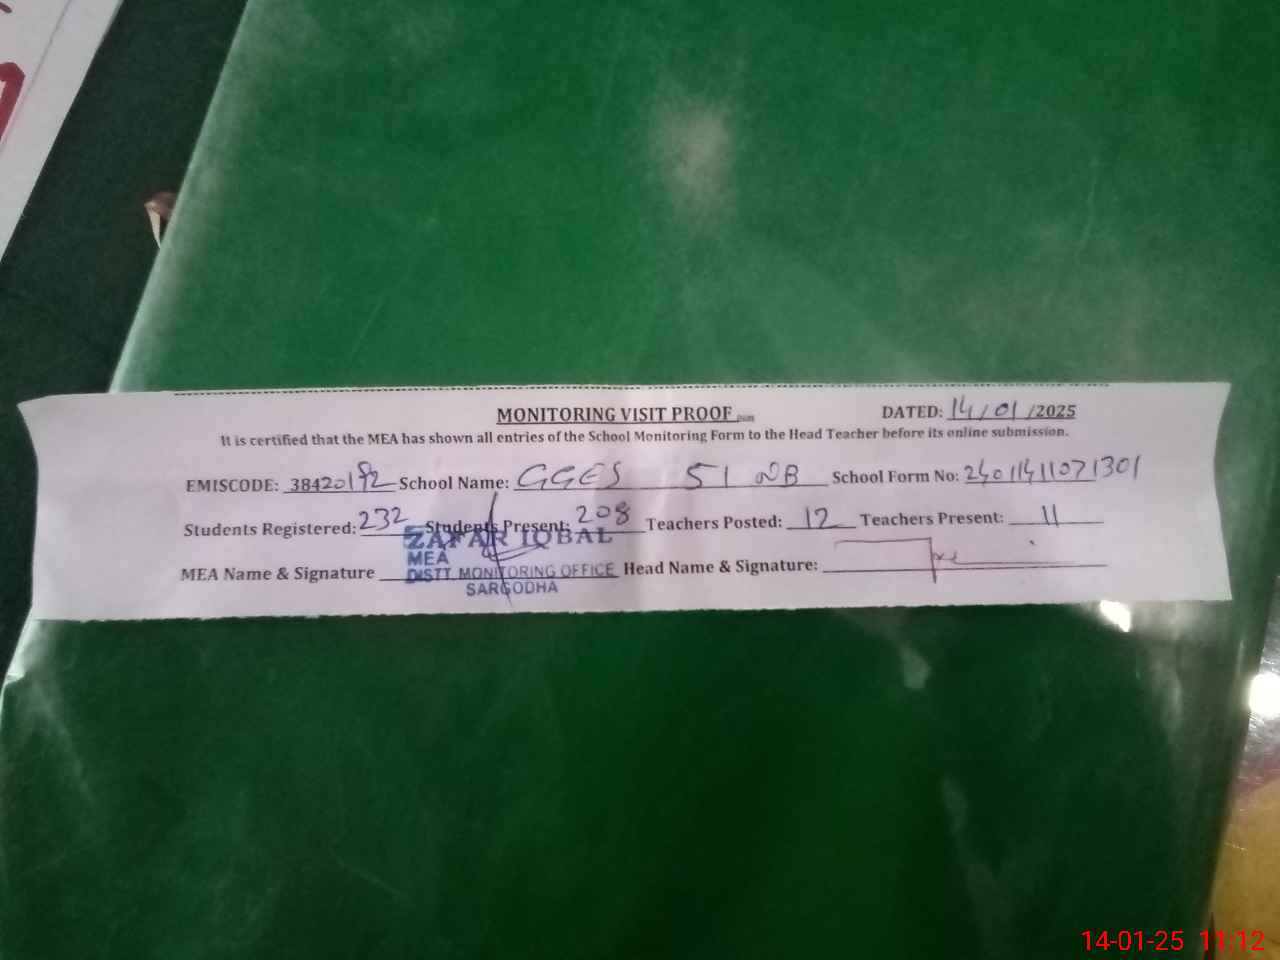 MONITORING VISIT PROOF
DATED: 14/01/2025
It is certified that the MEA has shown all entries of the School Monitoring Form to the Head Teacher before its online submission.
EMISCODE: 38420192 School Name: GGES 51 NB School Form No: 24011411071301
Students Registered: 232 Students Present: 208 Teachers Posted: 12 Teachers Present: 11
ZAFAR IQBAL
MEA
MEA Name & Signature DISTT. MONITORING OFFICE Head Name & Signature:
SARGODHA
14-01-25 11:12